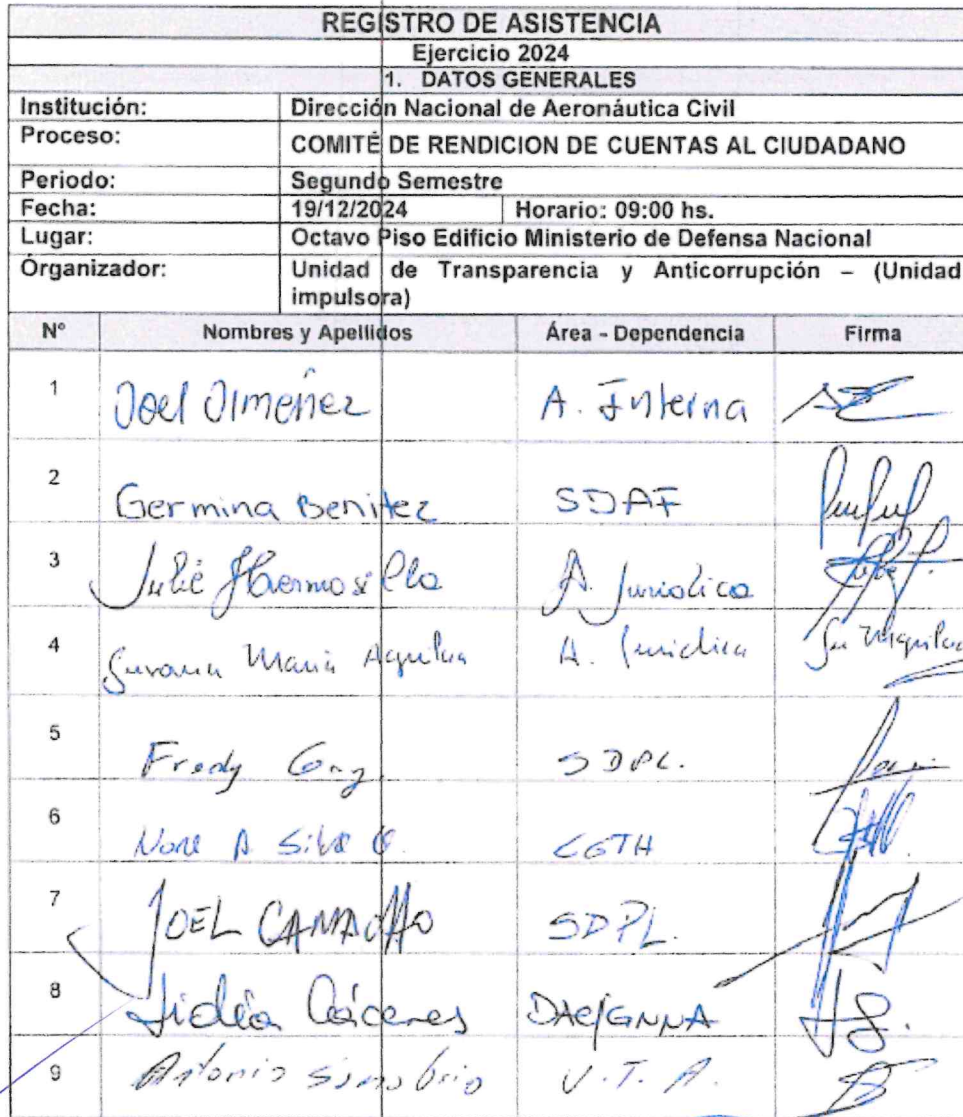 REGISTRO DE ASISTENCIA
Ejercicio 2024
1. DATOS GENERALES
Institución: Dirección Nacional de Aeronáutica Civil
Proceso: COMITÉ DE RENDICION DE CUENTAS AL CIUDADANO
Periodo: Segundo Semestre
Fecha: 19/12/2024 Horario: 09:00 hs.
Lugar: Octavo Piso Edificio Ministerio de Defensa Nacional
Órganizador: Unidad de Transparencia y Anticorrupción – (Unidad
impulsora)
N° Nombres y Apellidos Área - Dependencia Firma
1 Joel Jimenez A. Interna
2 Germina Benitez SDAF
3 Julie Hermosilla A. Juridica
4 Susana Maria Aquilua A. Juridica
5 Fredy SDPL.
6 Silva
7 JOEL CAMACHO SDPL.
8 Lidia Cáceres
9 Antonio U.T.A.